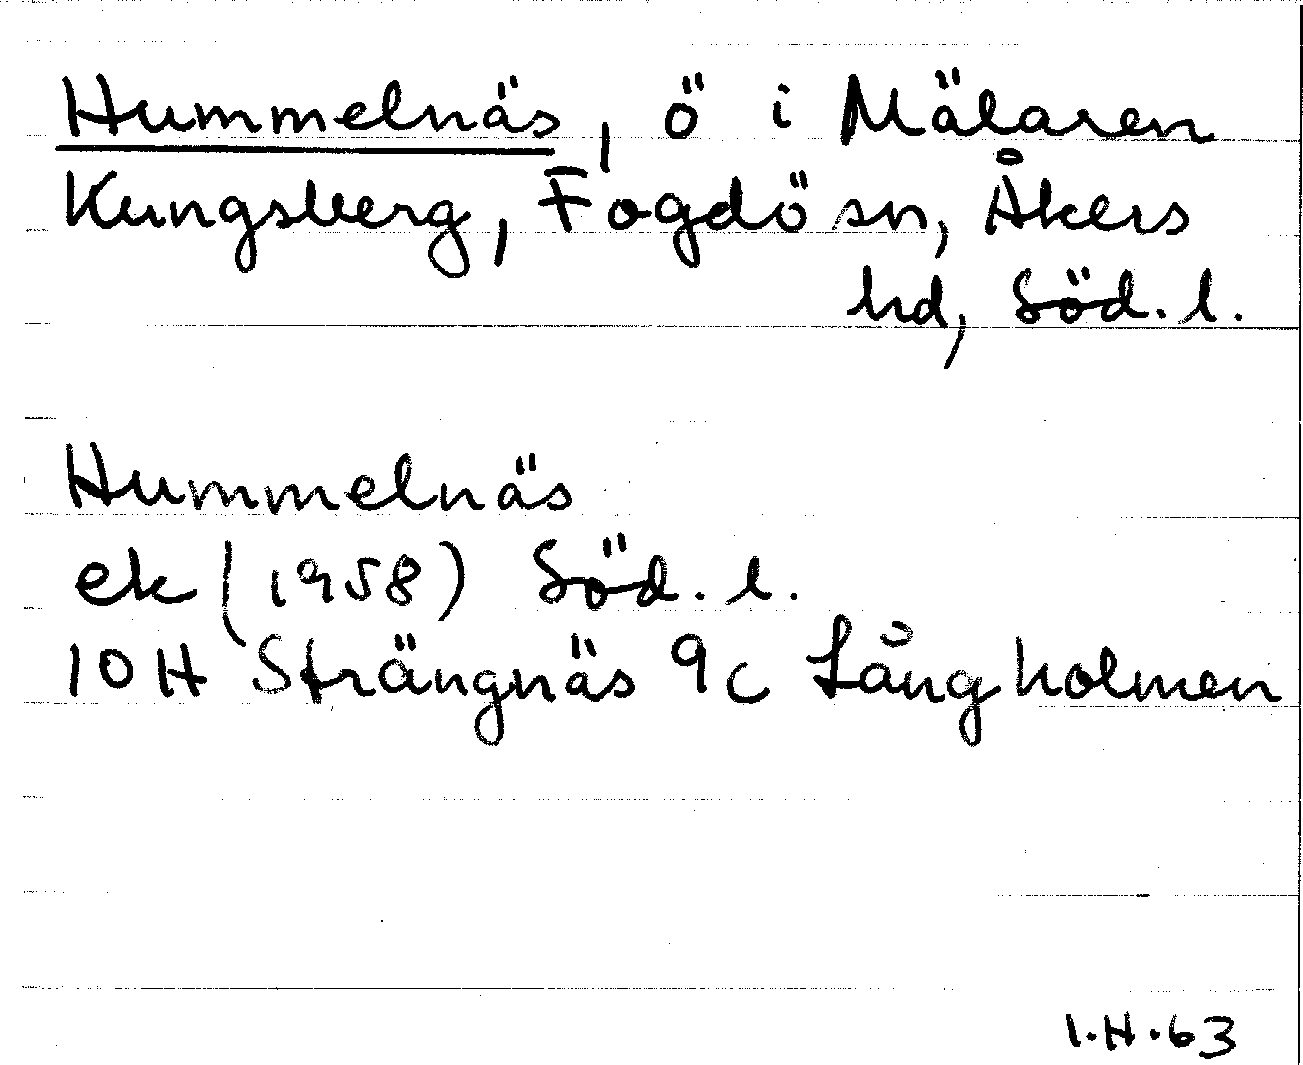 Hummelnäs, ö i Mälaren
Kungsberg, Fogdö sn, Åkers
hd, Söd. l.
Hummelnäs
ek (1958) Söd. l.
10H Strängnäs 9c Långholmen
I.H.63